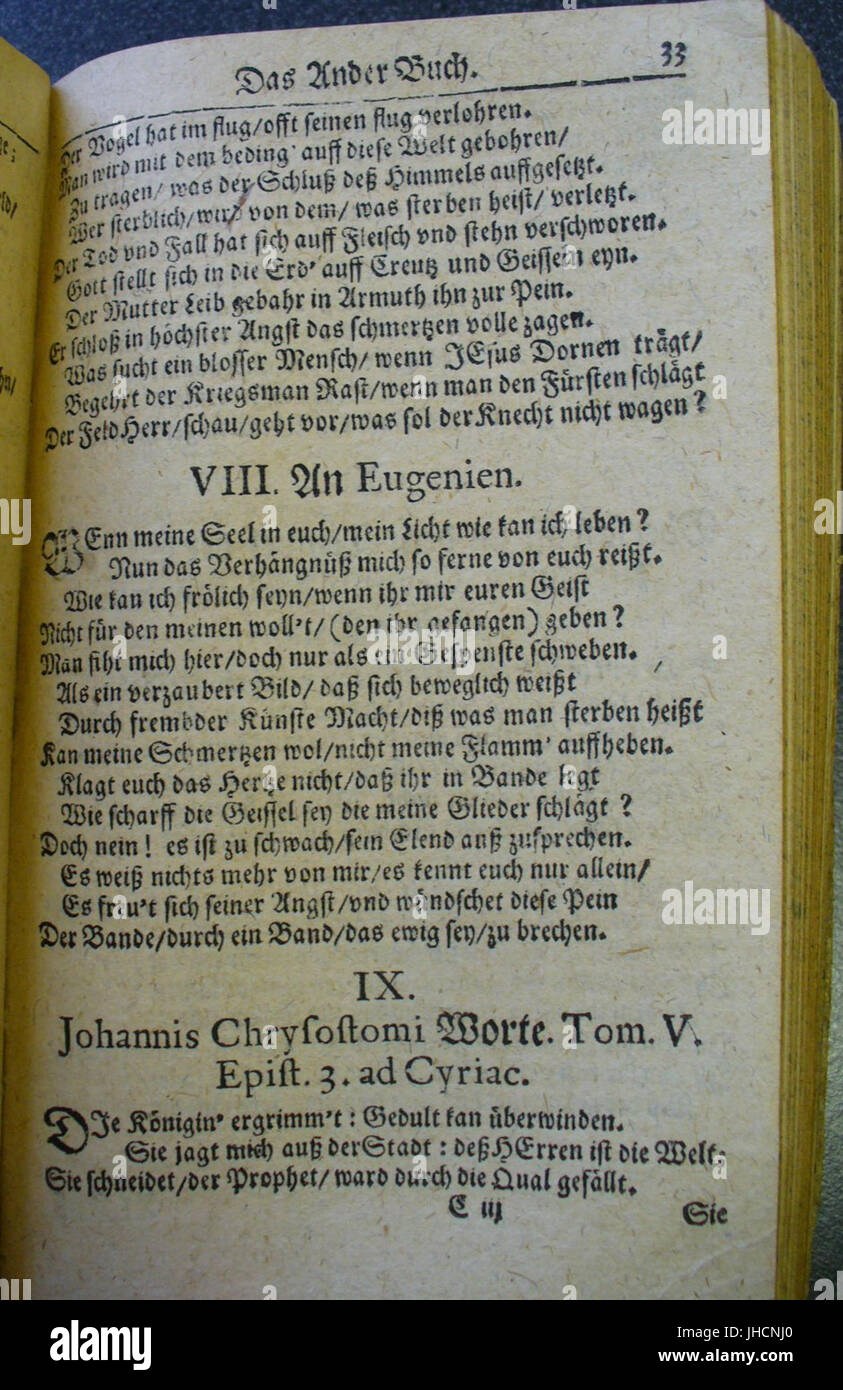 Das Ander Buch. 33
Der Vogel hat im flug/offt seinen flug verlohren.
Man wird mit dem beding' auff diese Welt gebohren/
Zu tragen/ was der Schluß deß Himmels auffgesetzt.
Wer sterblich/wird von dem/ was sterben heist/ verletzt.
Der Tod vnd Fall hat sich auff Fleisch vnd stehn verschworen.
Gott stellt sich in die Erd' auff Creutz und Geisseln eyn.
Der Mutter Leib gebahr in Armuth ihn zur Pein.
Er schloß in höchster Angst das schmertzen volle zagen.
Was sucht ein blosser Mensch/ wenn JEsus Dornen trägt/
Begehrt der Kriegsman Rast/wenn man den Fürsten schlägt
Der FeldHerr/schau/geht vor/was sol der Knecht nicht wagen?
VIII. An Eugenien.
WEnn meine Seel in euch/mein Licht wie kan ich leben?
Nun das Verhängnüß mich so ferne von euch reißt.
Wie kan ich frölich seyn/wenn ihr mir euren Geist
Nicht für den meinen woll't/ (den ihr gefangen) geben?
Man siht mich hier/doch nur als ein Gespenste schweben.
Als ein verzaubert Bild/ daß sich beweglich weißt
Durch frembder Künste Macht/diß was man sterben heißt
Kan meine Schmertzen wol/nicht meine Flamm' auffheben.
Klagt euch das Hertze nicht/daß ihr in Bande legt
Wie scharff die Geissel sey die meine Glieder schlägt?
Doch nein! es ist zu schwach/sein Elend auß zusprechen.
Es weiß nichts mehr von mir/es kennt euch nur allein/
Es freu't sich seiner Angst/vnd wündschet diese Pein
Der Bande/durch ein Band/das ewig sey/zu brechen.
IX.
Johannis Chrysostomi Worte. Tom. V.
Epist. 3. ad Cyriac.
DJe Königin' ergrimm't: Gedult kan überwinden.
Sie jagt mich auß der Stadt: deß HErren ist die Welt.
Sie schneidet/der Prophet/ ward durch die Qual gefällt.
C iij Sie
alamy
Image ID: JHCNJ0
www.alamy.com